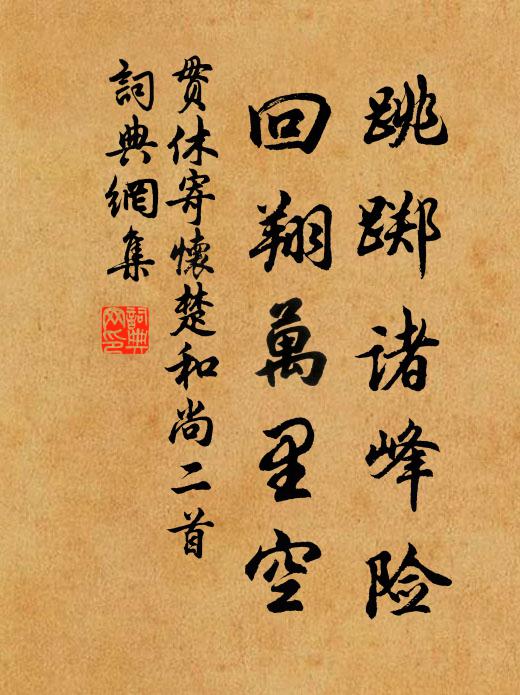 跳踯诸峰险
回翔萬里空
贯休寄懷楚和尚二首
詞典網集
詞典網印